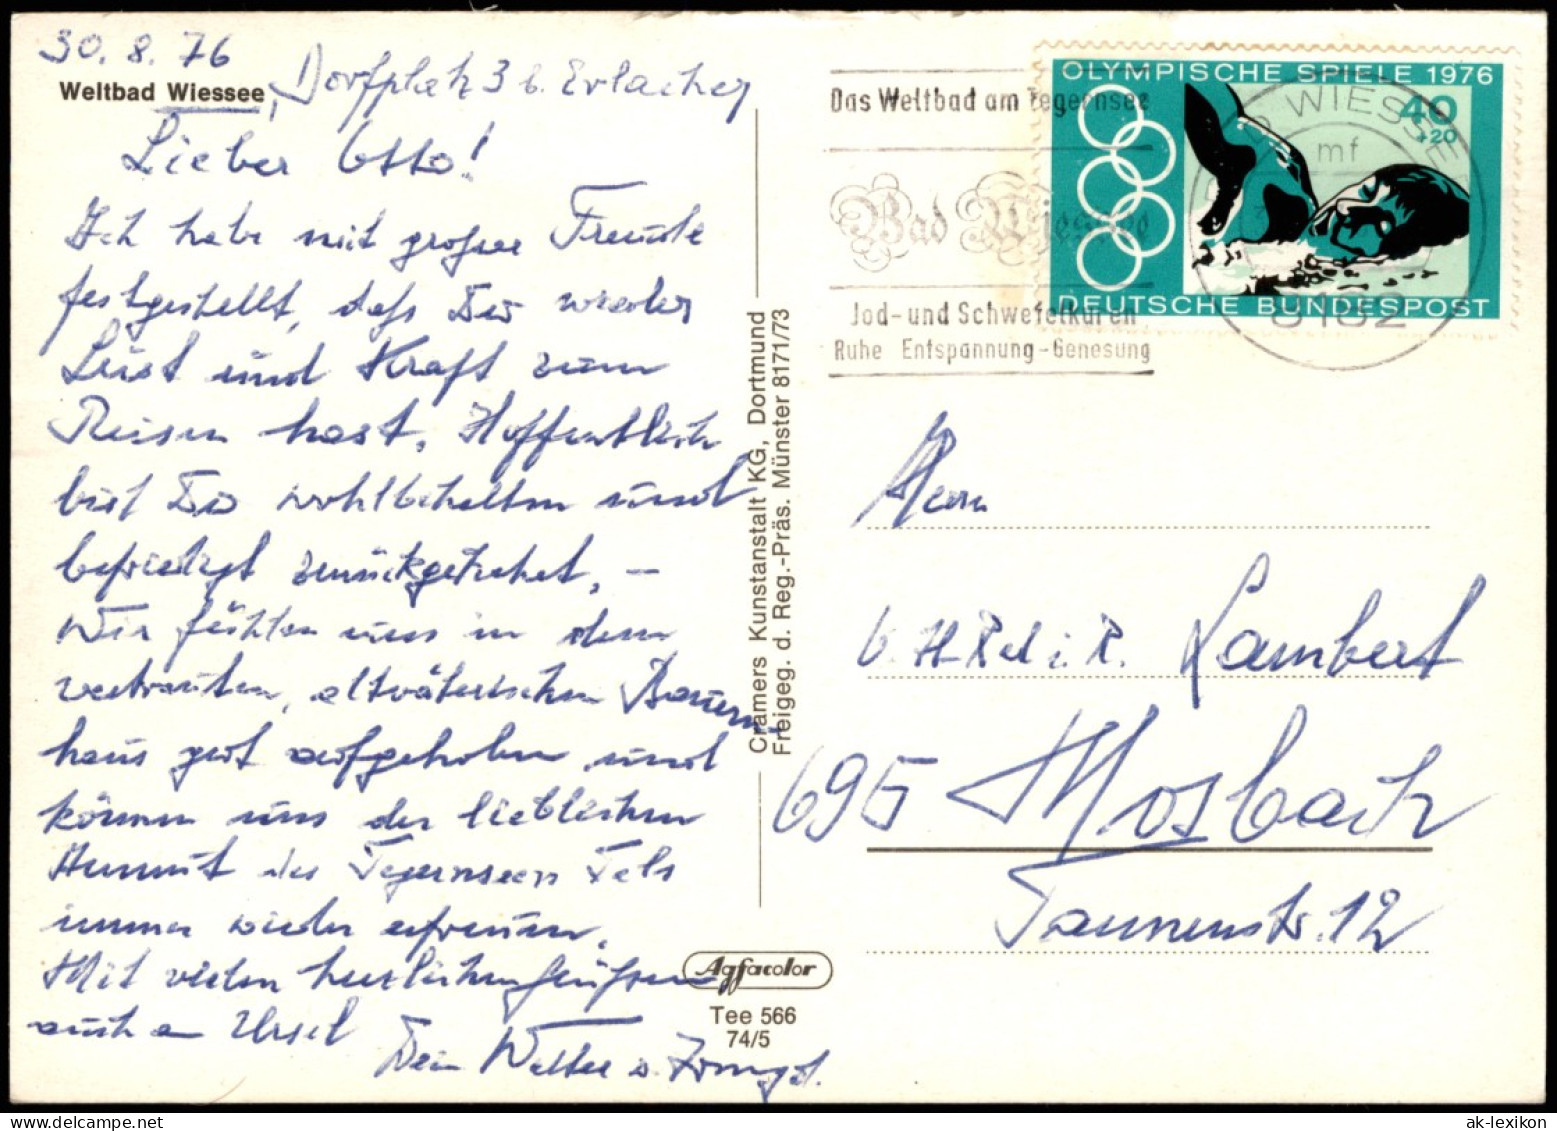 30. 8. 76
Weltbad Wiessee, Dorfplatz 3 b. Erlacher
Lieber Otto!
Ich habe mit großer Freude
festgestellt, daß Du wieder
Lust und Kraft zum
Reisen hast. Hoffentlich
bist Du wohlbehalten und
befriedigt zurückgekehrt, –
Wir fühlen uns in dem
vertrauten, altväterischen Bauern
haus gut aufgehoben und
können uns der lieblichen
Anmut des Tegernseer Tals
immer wieder erfreuen.
Mit vielen herzlichen Grüßen
auch an Ursel
Dein Walter u.
Cramers Kunstanstalt KG, Dortmund
Freigeg. d. Reg.-Präs. Münster 8171/73
Agfacolor
Tee 566
74/5
Das Weltbad am Tegernsee
Bad Wiessee
Jod- und Schwefelkuren
Ruhe Entspannung-Genesung
OLYMPISCHE SPIELE 1976
40
+20
DEUTSCHE BUNDESPOST
BAD WIESSEE
mf
8182
Herrn
i. R. Lambert
695 Mosbach
Tannenstr. 12
ak-lexikon